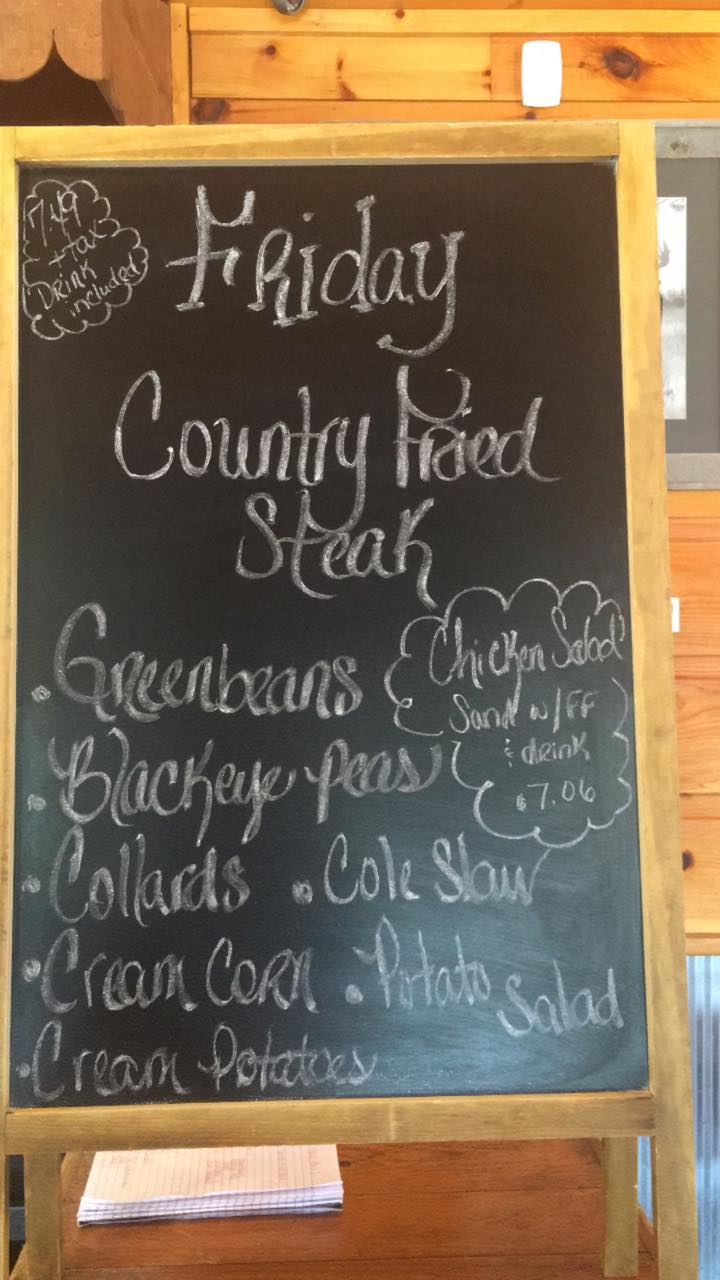 7.49
+ tax
Drink
included
Friday
Country Fried
Steak
• Greenbeans
• Blackeye Peas
Chicken Salad
Sand w/FF
& drink
$7.06
• Collards • Cole Slaw
• Cream Corn • Potato Salad
• Cream Potatoes